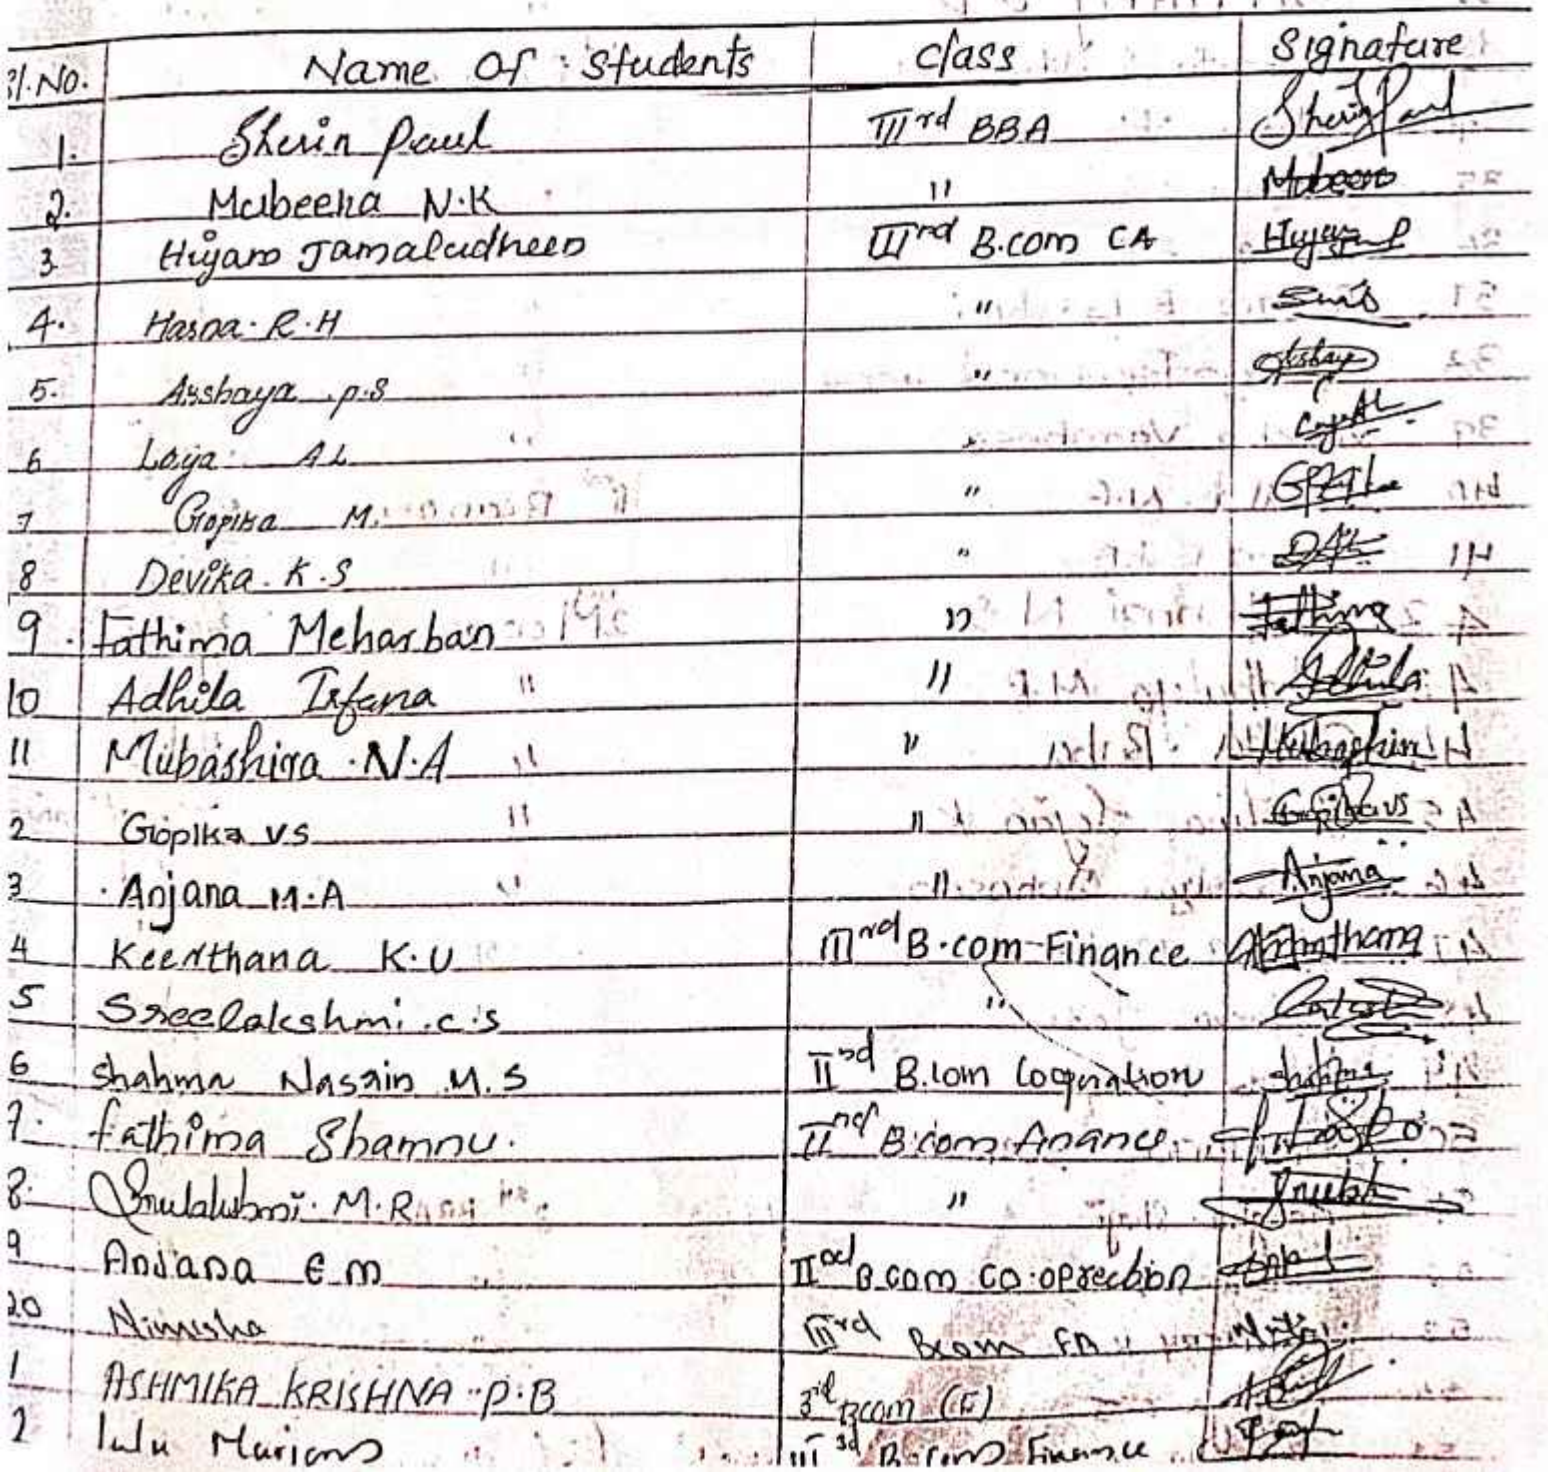 Sl.No. Name Of Students Class Signature
1. Sherin Paul IIIrd BBA Sherin Paul
2. Mubeena N.K " Mubeena
3 Hiyam Jamaludheen IIIrd B.com CA
4. Hasna R.H "
5. Akshaya p.s " Akshaya
6 Laya AL
7 Gopika M. "
8 Devika. K.S "
9. Fathima Meharban " Fathima
10 Adhila Irfana " " Adhila
11 Mubashira .N.A " " Mubashira
2 Gopika VS " " Gopika VS
3 Anjana M.A " " Anjana
4 Keerthana K.U IIIrd B.com Finance Keerthana
5 Sreelakshmi.c.s "
6 Shahma Nasrin M.S IInd B.Com Cooperation Shahma
7. Fathima Shamnu. IInd B.com Finance
8. M.R "
9 Anjana E m IInd B.com co.oprection
20 Nimisha IIIrd Bcom
1 ASHMIKA KRISHNA P.B 3rd Bcom (F)
2 lulu Mariam III rd B.com Finance